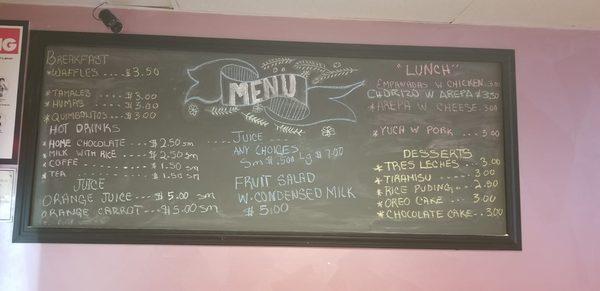 NG
BREAKFAST
*WAFFLES ....$3.50
*TAMALES ....$3.00
*HUMAS ....$3.00
*QUIMBOLITOS ...$3.00
HOT DRINKS
*HOME CHOCOLATE ..$2.50 sm
*MILK WITH RICE ..$2.50 sm
*COFFE ....$1.50 sm
*TEA ....$1.50 sm
JUICE
ORANGE JUICE ---$5.00 sm
ORANGE CARROT ---$5.00 sm
MENU
JUICE
ANY CHOICES
Sm $.500 Lg $7.00
FRUIT SALAD
W. CONDENSED MILK
$5.00
"LUNCH"
EMPANADAS W CHICKEN 3.50
CHORIZO W AREPA $3.50
*AREPA W CHEESE 3.00
*YUCA W PORK ... 3.00
DESSERTS
*TRES LECHES... 3.00
*TIRAMISU ..... 3.00
*RICE PUDING.... 2.50
*OREO CAKE .... 3.00
*CHOCOLATE CAKE... 3.00